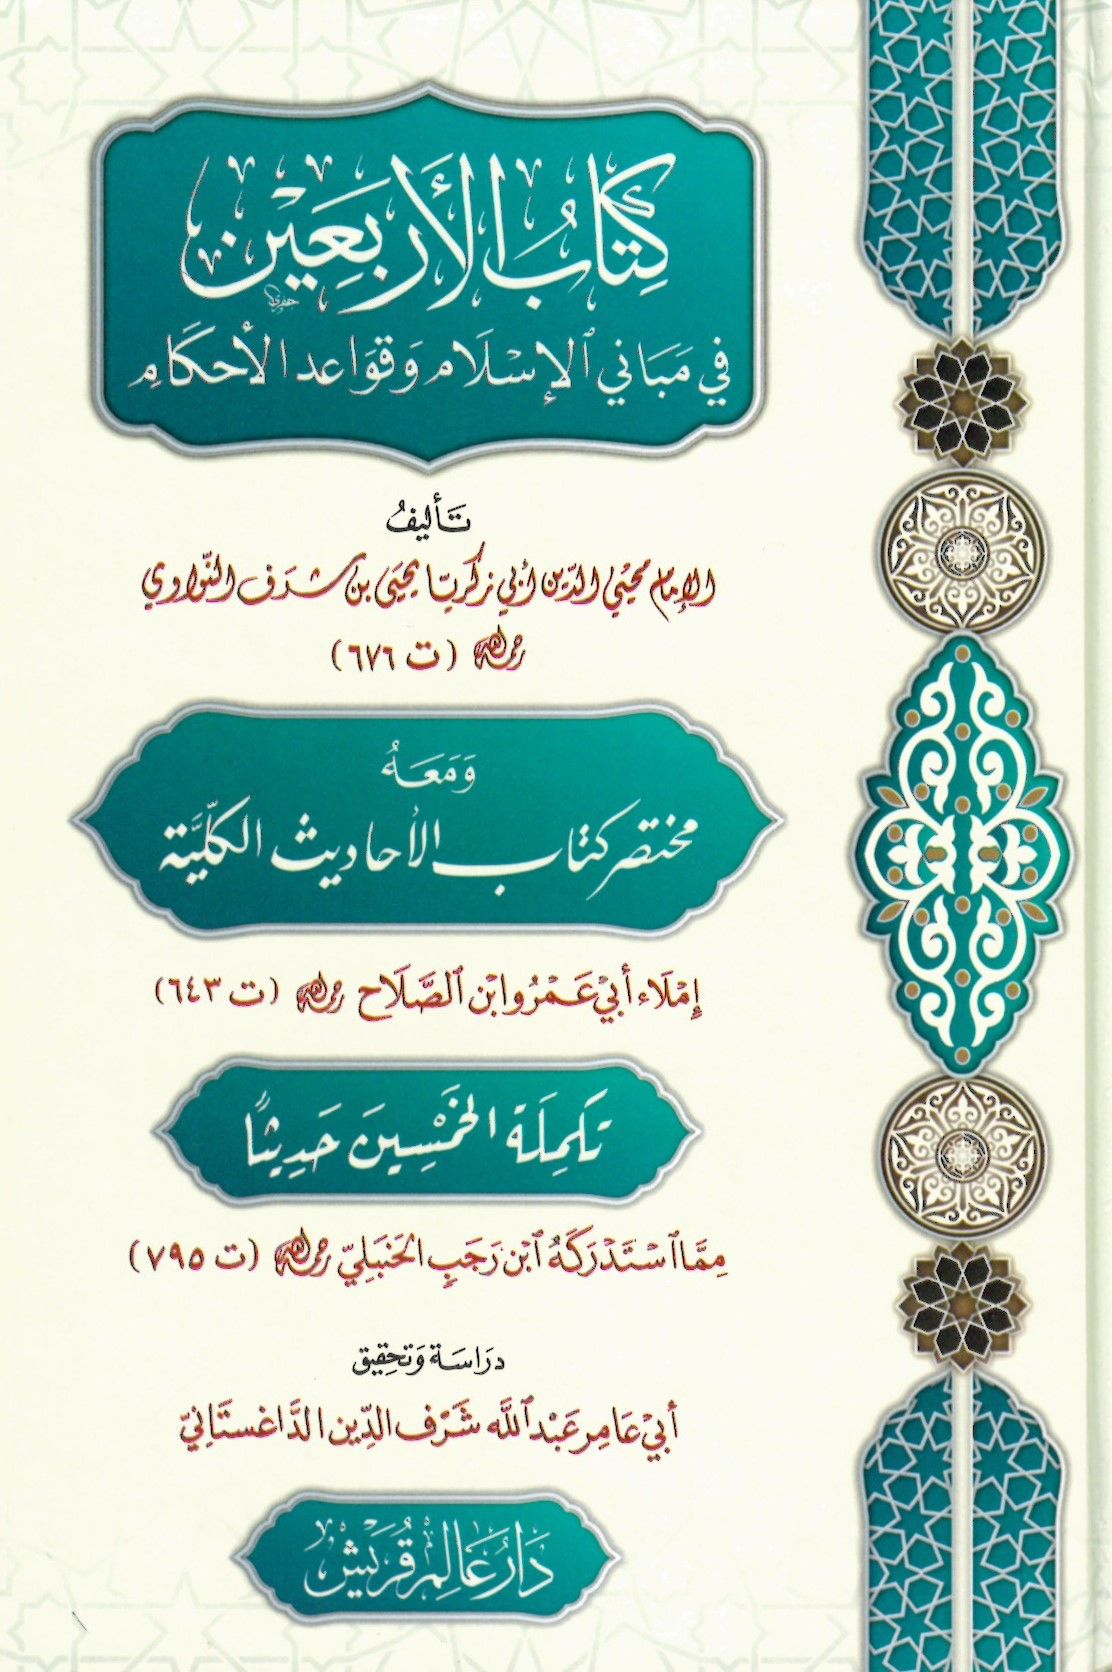 كِتَابُ الأَرْبَعِيْن
في مَبَاني الإِسْلَام وَقوَاعد الأحكَام
تَأليفُ
الإمام محيي الدّين أبي زكريّا يحيى بن شرَف النّواوي
رحمه الله (ت ٦٧٦)
وَمَعَهُ
مختصر كتاب الأحاديث الكلّيَّة
إمْلَاء أبيْ عَمْرُو ابْن الصَّلَاح رحمه الله (ت ٦٤٣)
تَكمِلَة الخَمْسِينَ حَدِيثًا
مِمَّا اسْتَدْرَكَهُ ابْن رَجَبٍ الحَنبَلِيّ رحمه الله (ت ٧٩٥)
درَاسَة وَتحقِيق
أبيْ عَامِر عَبْد اللَّه شَرَف الدِّين الدَّاغستَانيّ
دَارُ عَالم قُرَيش